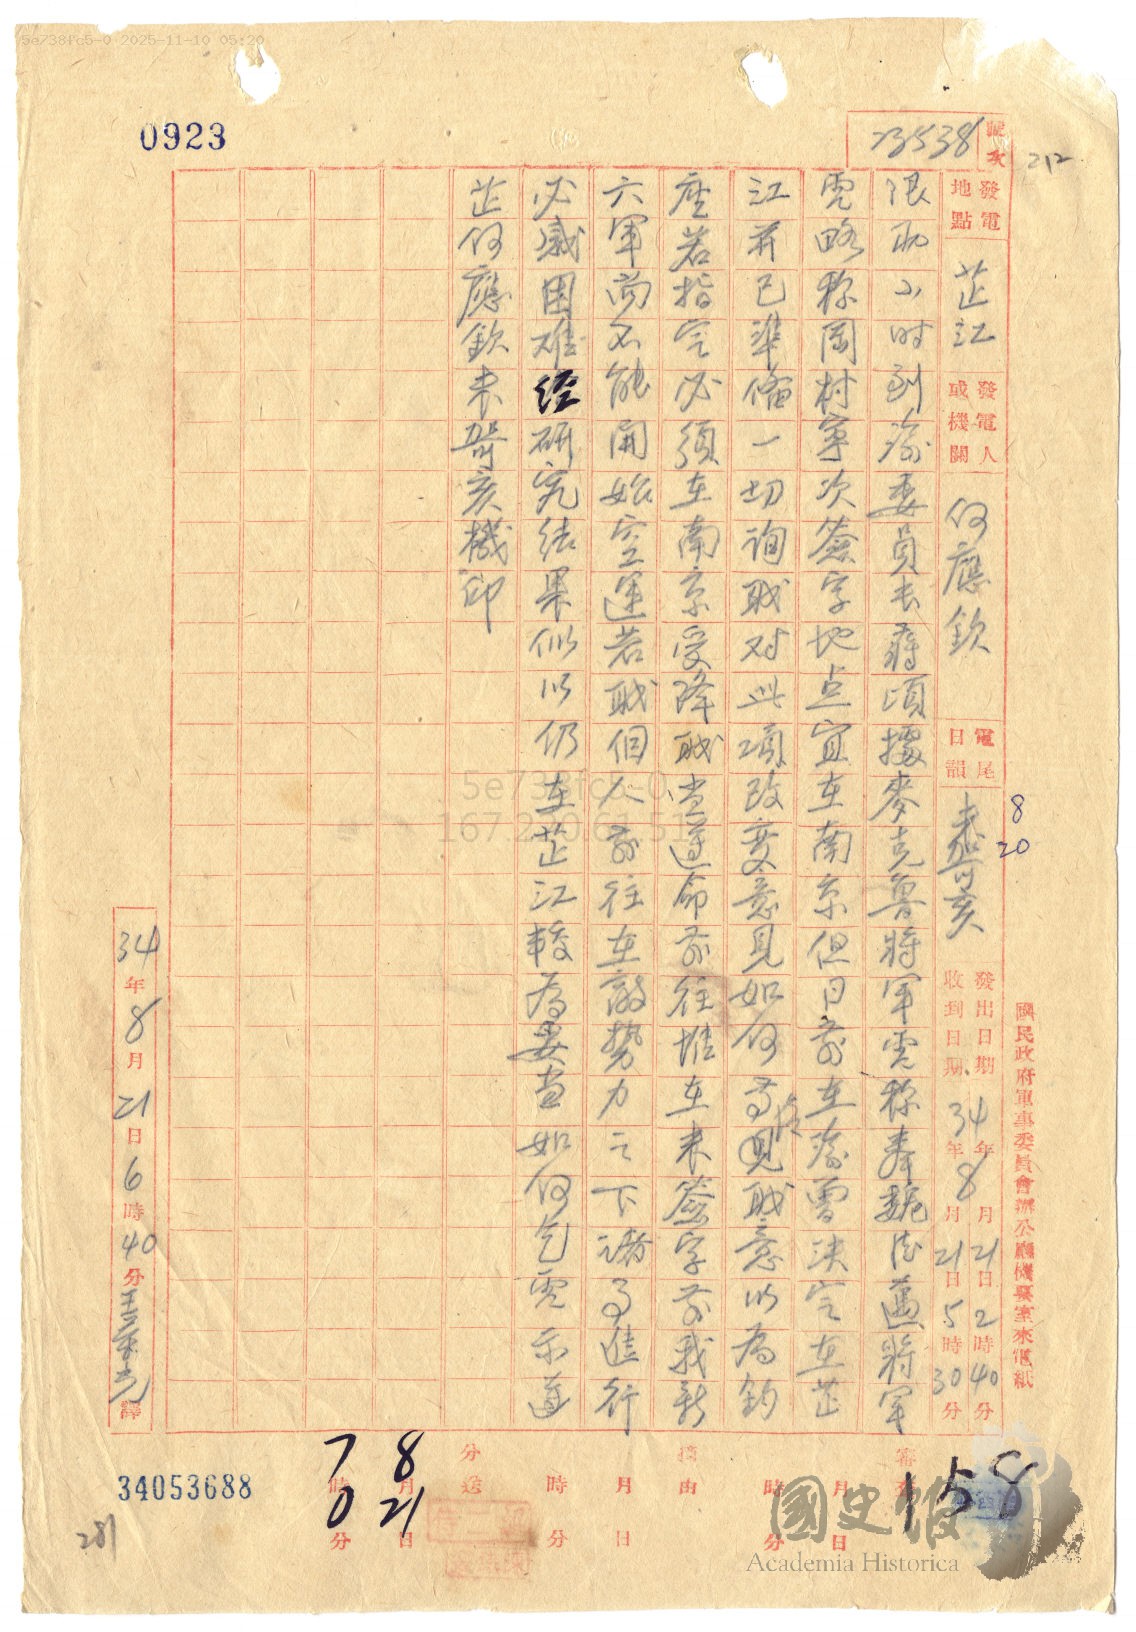 5e738fc5-0 2025-11-10 05:20
0923
號次 23538
212
發電地點 芷江 發電人或機關 何應欽 電尾日韻 未哿亥 發出日期 34年8月21日2時40分 收到日期 34年8月21日5時30分
8
20
國民政府軍事委員會辦公廳機要室來電紙
限兩小时到渝委員長蔣頃據麥克魯將軍電称奉魏德邁將軍
電略称岡村寧次簽字地点宜在南京但日前在渝曾決定在芷
江并已準備一切詢職对此項改变意見如何等語職意以為鈞
座若指定必須在南京受降職当遵命前往惟在未簽字前我新
六軍尚不能開始空運若職個人前往在敵势力之下諸事進行
必感困难經研究結果似以仍在芷江較為妥当如何乞電示遵
芷何應欽未哿亥機印
5e738fc5-0
167.2 0.61.51
34年8月21日6時40分 譯
審核 158
月 日 時 分
摘由
月 日 時 分
分送
8月21日7時0分
34053688
281
國史館
Academia Historica